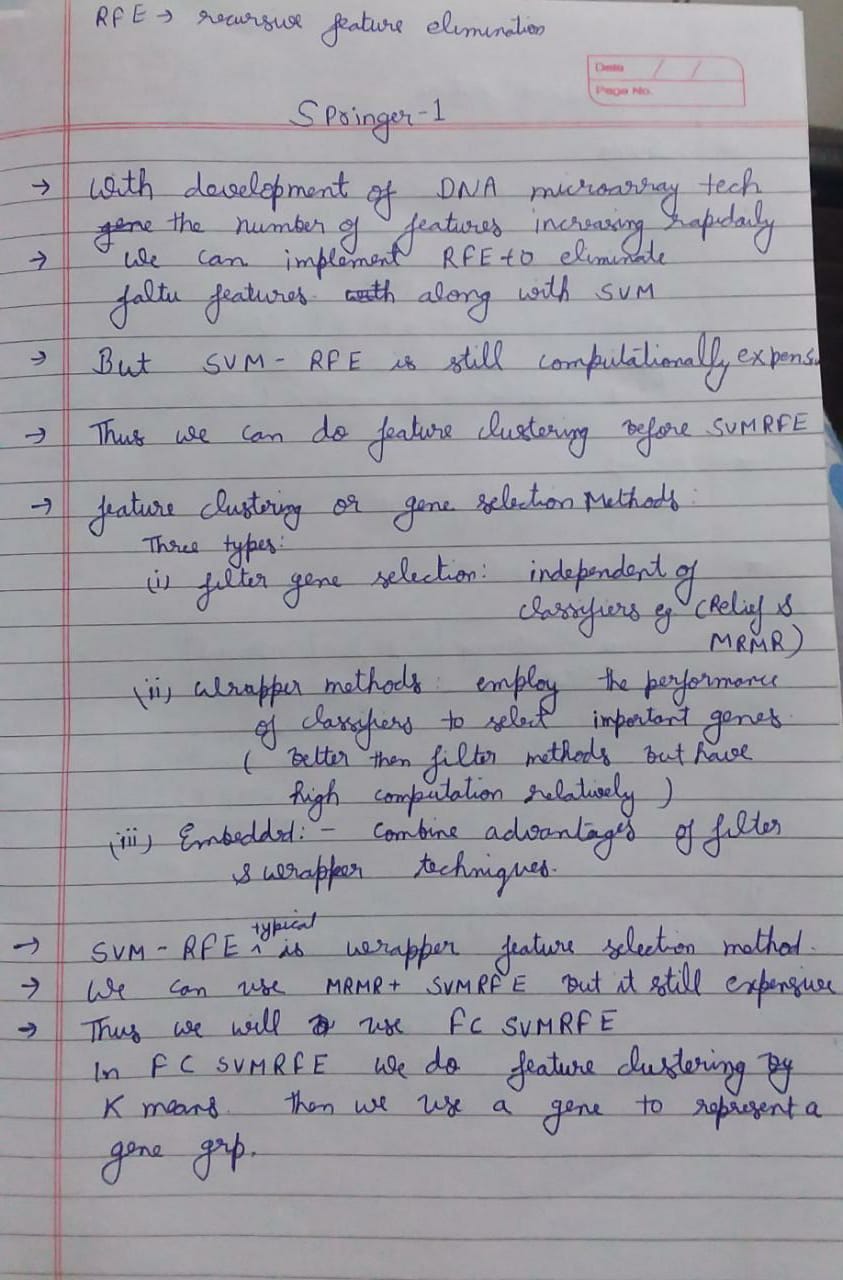 RFE → recursive feature elimination
Date / /
Page No.
Springer-1
→ With development of DNA microarray tech
gene the number of features increasing rapidaily
→ We can implement RFE to eliminate
faltu features with along with SVM
→ But SVM - RFE is still computationally expens
→ Thus we can do feature clustering before SVMRFE
→ feature clustering or gene selection Methods:
Three types:
(i) filter gene selection: independent of
classifiers eg (Relief &
MRMR)
(ii) Wrapper methods: employ the performance
of classifiers to select important genes
( better then filter methods but have
high computation relatively )
(iii) Embedded: - Combine advantages of filter
& wrapper techniques.
typical
→ SVM - RFE ^ is wrapper feature selection method.
→ We can use MRMR + SVMRFE but it still expensive
→ Thus we will use FC SVMRFE
In FC SVMRFE we do feature clustering by
K means. then we use a gene to represent a
gene grp.